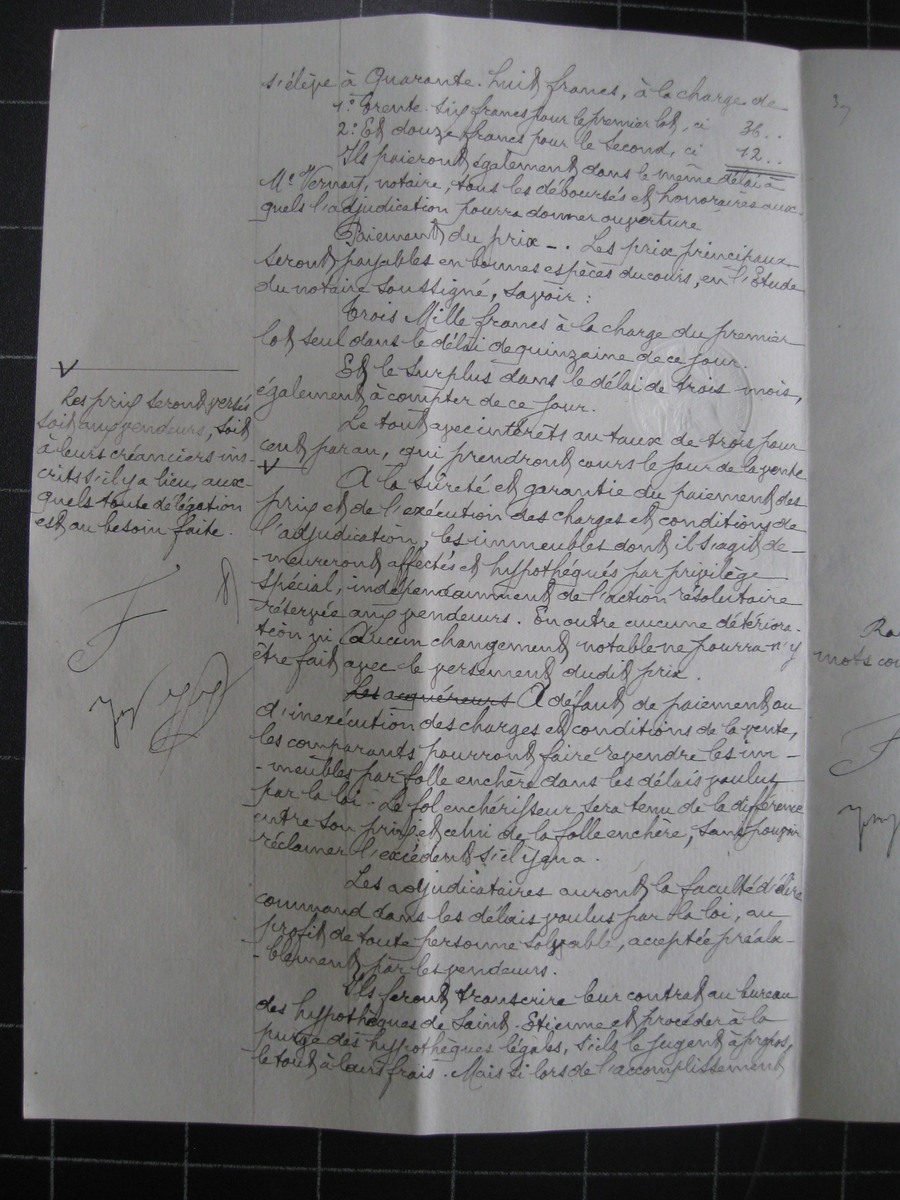 s'élève à Quarante-huit francs, à la charge de
1° Trente-six francs pour le premier lot, ci 36..
2° Et douze francs pour le second, ci 12..
Ils paieront également dans le même délai à
Me Vernay, notaire, tous les déboursés et honoraires aux-
quels l'adjudication pourra donner ouverture
Paiement du prix -. Les prix principaux
seront payables en bonnes espèces du cours, en l'Etude
du notaire soussigné, savoir :
Trois Mille francs à la charge du premier
lot seul dans le délai de quinzaine de ce jour.
Et le surplus dans le délai de trois mois,
également à compter de ce jour.
Le tout avec intérêts au taux de trois pour
cent par an, qui prendront cours le jour de la vente
V
A la sûreté et garantie du paiement des
prix et de l'exécution des charges et conditions de
l'adjudication, les immeubles dont il s'agit de-
-meureront affectés et hypothéqués par privilège
spécial, indépendamment de l'action résolutoire
réservée aux vendeurs. En outre aucune détériora-
tion ni aucun changement notable ne pourra n'y
être fait avec le versement dudit prix.
Les acquéreurs A défaut de paiement ou
d'inexécution des charges et conditions de la vente,
les comparants pourront faire revendre les im-
-meubles par folle enchère dans les délais voulus
par la loi. Le fol enchérisseur sera tenu de la différence
entre son prix et celui de la folle enchère, sans pouvoir
réclamer l'excédent s'il y en a.
Les adjudicataires auront la faculté d'élire
command dans les délais voulus par la loi, au
profit de toute personne solvable, acceptée préala-
-blement par les vendeurs.
Ils feront transcrire leur contrat au bureau
des hypothèques de Saint-Etienne et procéder à la
purge des hypothèques légales, s'ils le jugent à propos,
le tout à leurs frais. Mais si lors de l'accomplissement
V
Les prix seront versés
soit aux vendeurs, soit
à leurs créanciers ins-
crits s'il y a lieu, aux-
quels toute délégation
est au besoin faite.
F
mots
F